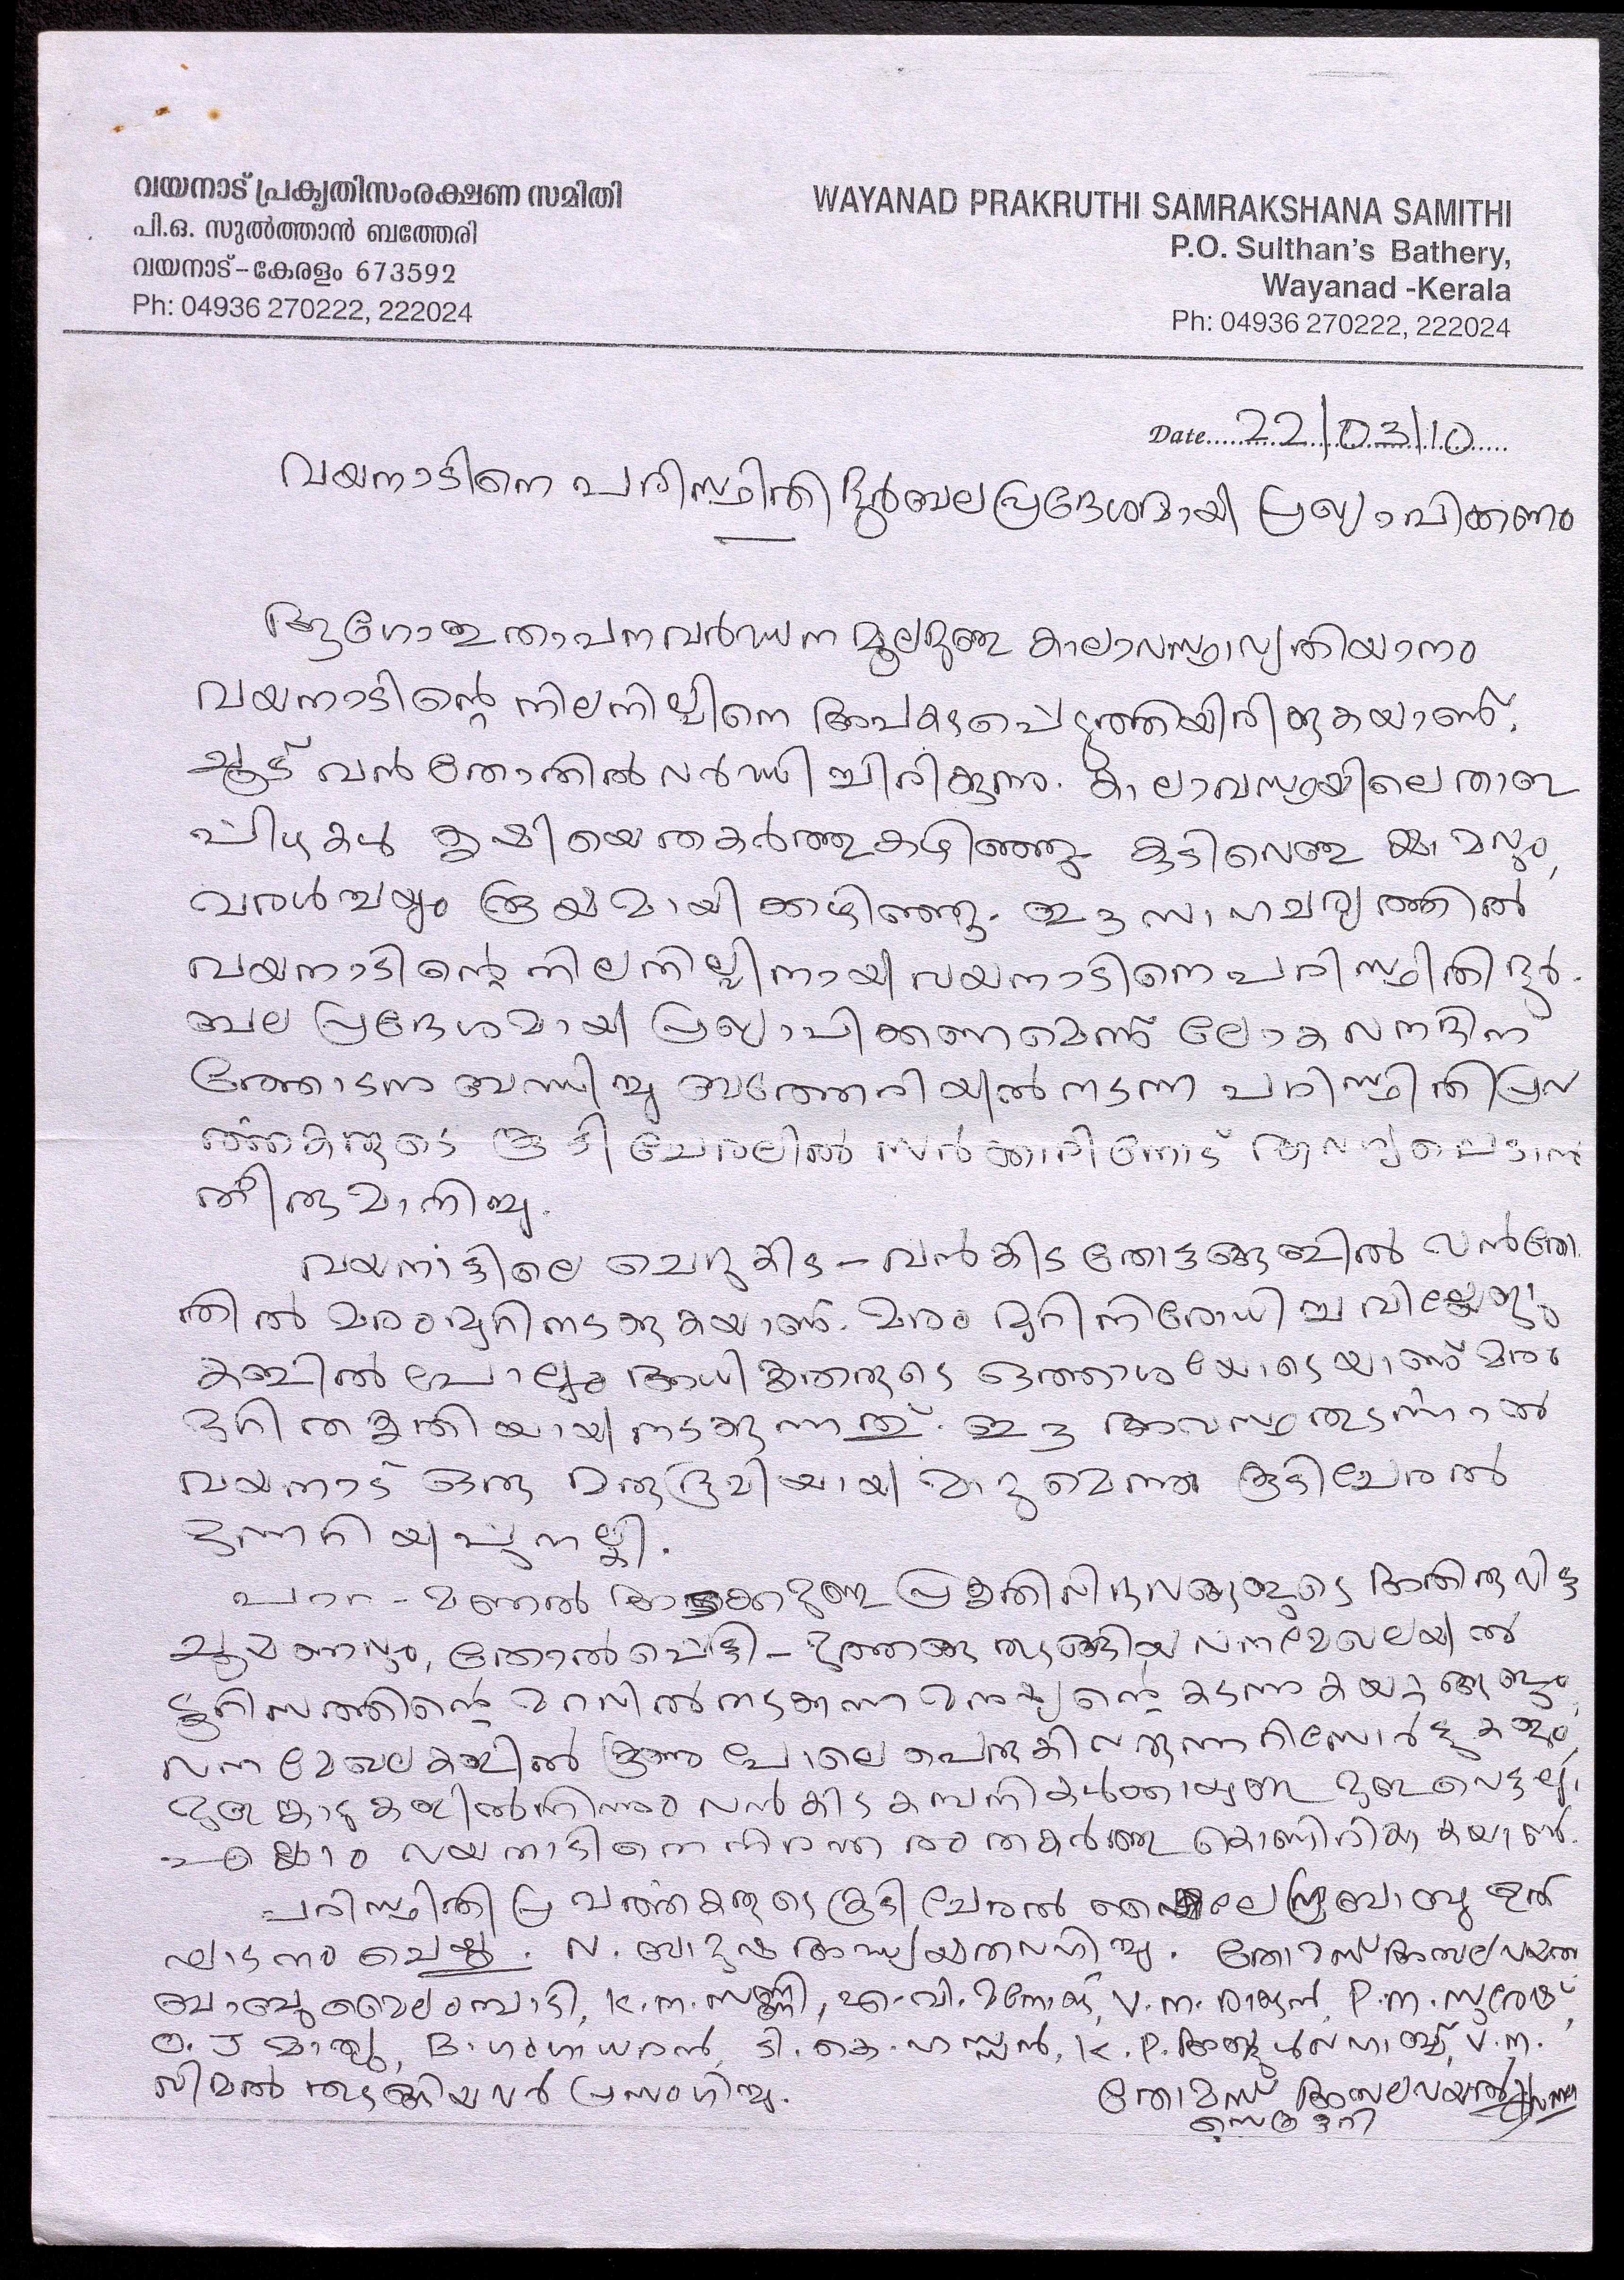 വയനാട് പ്രകൃതിസംരക്ഷണ സമിതി
പി.ഒ. സുൽത്താൻ ബത്തേരി
വയനാട്-കേരളം 673592
Ph: 04936 270222, 222024
WAYANAD PRAKRUTHI SAMRAKSHANA SAMITHI
P.O. Sulthan's Bathery,
Wayanad -Kerala
Ph: 04936 270222, 222024
Date 22/03/10
വയനാടിനെ പരിസ്ഥിതി ദുർബല പ്രദേശമായി പ്രഖ്യാപിക്കണം
ആഗോളതാപനവർദ്ധന മൂലമുള്ള കാലാവസ്ഥാവ്യതിയാനം
വയനാടിന്റെ നിലനില്പിനെ അപകടപ്പെടുത്തിയിരിക്കുകയാണ്.
ചൂട് വൻ തോതിൽ വർദ്ധിച്ചിരിക്കുന്നു. കാലാവസ്ഥയിലെ താള
പിഴകൾ കൃഷിയെ തകർത്തുകഴിഞ്ഞു. കുടിവെള്ള ക്ഷാമവും,
വരൾച്ചയും രൂക്ഷമായിക്കഴിഞ്ഞു. ഈ സാഹചര്യത്തിൽ
വയനാടിന്റെ നിലനില്പിനായി വയനാടിനെ പരിസ്ഥിതി ദുർ-
ബല പ്രദേശമായി പ്രഖ്യാപിക്കണമെന്ന് ലോക വനദിന
ത്തോടനുബന്ധിച്ചു ബത്തേരിയിൽ നടന്ന പരിസ്ഥിതി പ്രവ
ർത്തകരുടെ കൂടിച്ചേരലിൽ സർക്കാരിനോട് ആവശ്യപ്പെടാൻ
തീരുമാനിച്ചു.
വയനാട്ടിലെ ചെറുകിട - വൻകിട തോട്ടങ്ങളിൽ വൻതോ
തിൽ മരംമുറി നടക്കുകയാണ്. മരം മുറി നിരോധിച്ച വില്ലേജു
കളിൽ പോലും അധികൃതരുടെ ഒത്താശയോടെയാണ് മരം
മുറി തകൃതിയായി നടക്കുന്നത്. ഈ അവസ്ഥ തുടർന്നാൽ
വയനാട് ഒരു മരുഭൂമിയായി മാറുമെന്നു കൂടിച്ചേരൽ
മുന്നറിയിപ്പു നല്കി.
പാറ - മണൽ അടക്കമുള്ള പ്രകൃതിവിഭവങ്ങളുടെ അതിരുവിട്ട
ചൂഷണവും, തോൽപെട്ടി - മുത്തങ്ങ തുടങ്ങിയ വനമേഖലയിൽ
ടൂറിസത്തിന്റെ മറവിൽ നടക്കുന്ന മനുഷ്യന്റെ കടന്നുകയറ്റങ്ങളും,
വന മേഖലകളിൽ കൂണു പോലെ പെരുകിവരുന്ന റിസോർട്ടുകളും,
മുളങ്കാടുകളിൽനിന്നും വൻകിട കമ്പനികൾക്കായുള്ള മുളവെട്ടലും
എല്ലാം വയനാടിനെ നിരന്തരം തകർത്തു കൊണ്ടിരിക്കുകയാണ്.
പരിസ്ഥിതി പ്രവർത്തകരുടെ കൂടിച്ചേരൽ ബാബു ഉൽ
ഘാടനം ചെയ്തു. N. ബാദുഷ അദ്ധ്യക്ഷത വഹിച്ചു. തോമസ് അമ്പലവയൽ
ബാബു മൈലമ്പാടി, K.M. സണ്ണി, എ.വി. മനോജ്, V.M. രാജൻ, P.M. സുരേഷ്,
O.J മാത്യു, B. ഗംഗാധരൻ, ടി.കെ. ഹസ്സൻ, K.P. അബ്ദുൾവഹാബ്, V.M.
വിമൽ തുടങ്ങിയവർ പ്രസംഗിച്ചു.
തോമസ് അമ്പലവയൽ
സെക്രട്ടറി